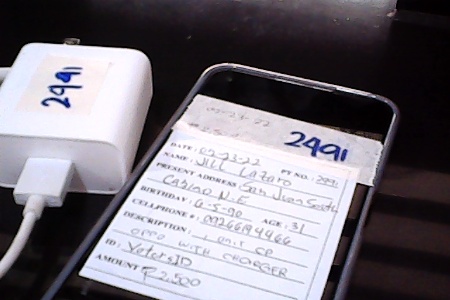 2991
05-23-22
2991
DATE: 05-23-22
NAME: JILL LAZARO PT NO. 2991
PRESENT ADDRESS San Juan South
Cabiao N.E
BIRTHDAY: 6-5-90 AGE: 31
CELLPHONE #: 09266194466
DESCRIPTION: 1 unit CP
OPPO WITH CHARGER
ID: VotersID
AMOUNT ₱2,500